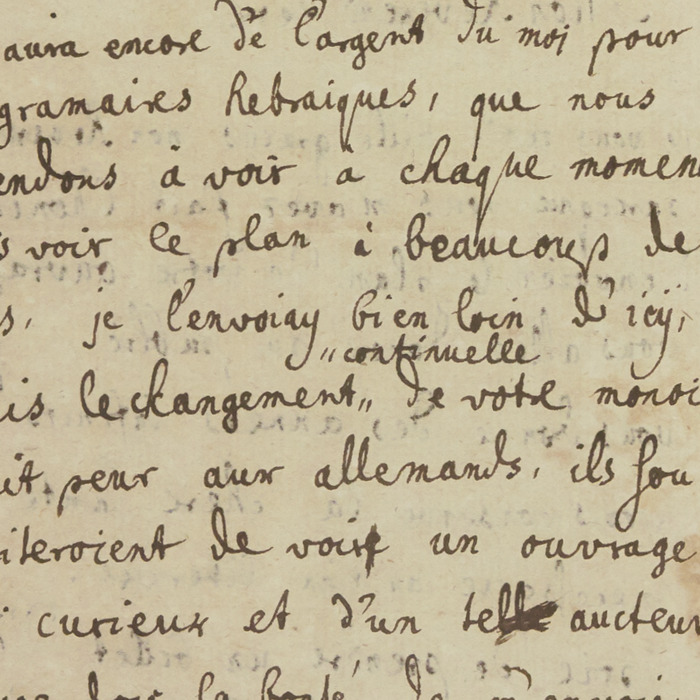 aura encore de l'argent du moi pour
gramaires hebraiques, que nous
endons à voir à chaque momen
s voir le plan à beaucoup de
s, je l'envoiay bien loin d'icy,
"continuelle
is le changement" de votre monoi
it peur aux allemands, ils sou
iteroient de voir un ouvrage
curieux et d'un tel aucteur
la bonté de